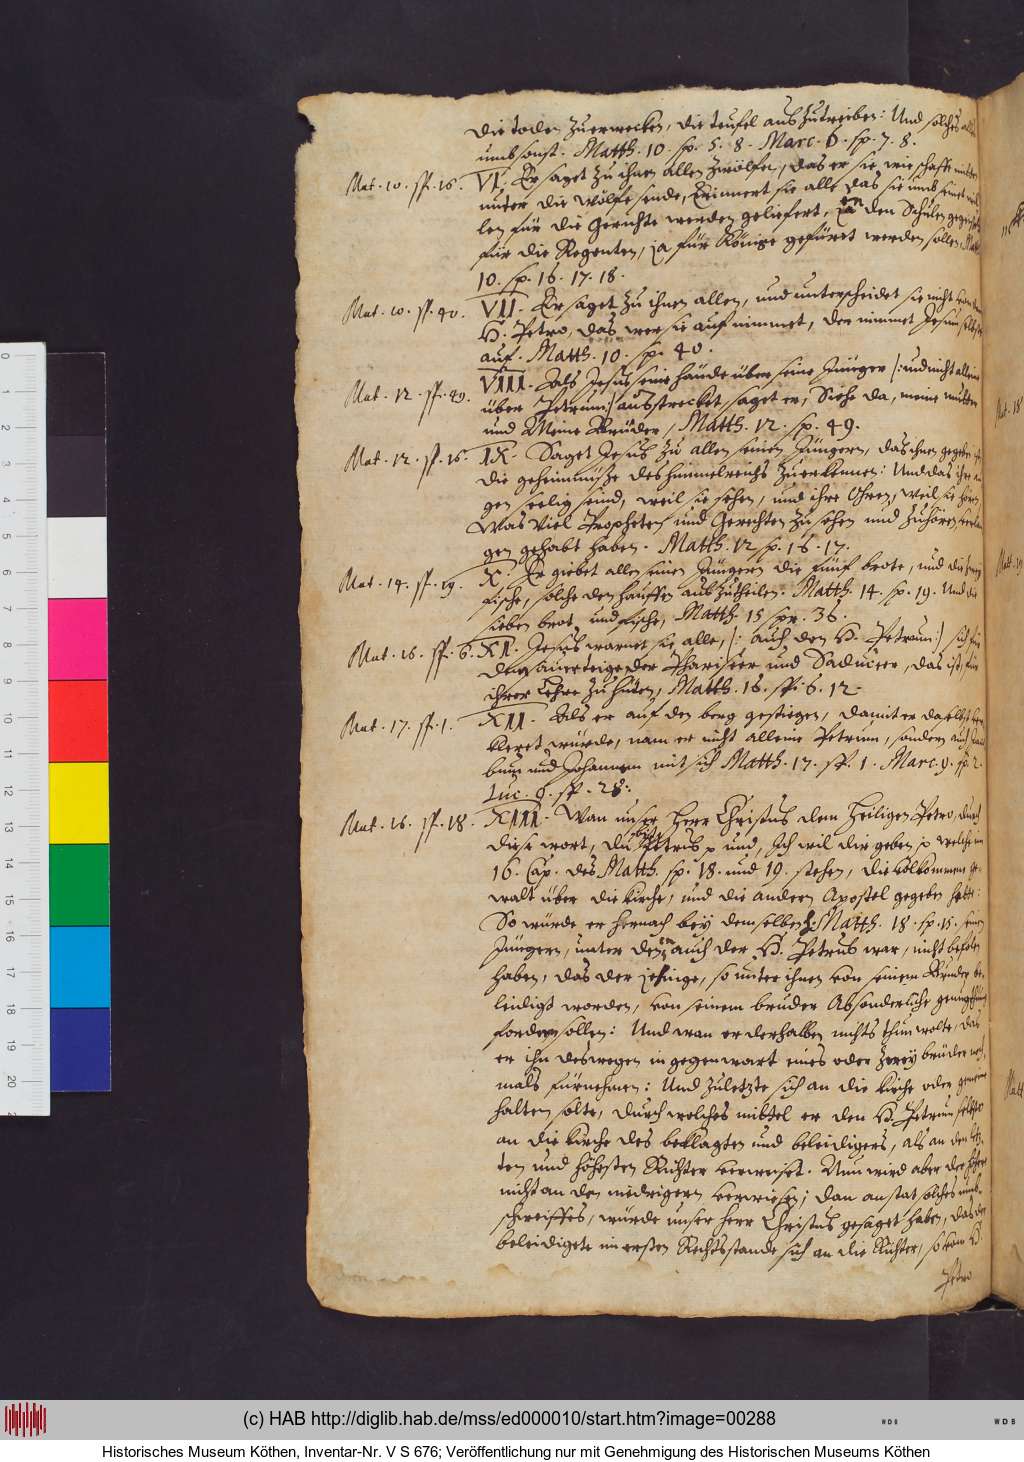 die toden Zuerwecken, die teufel ausZutreiben: Und solches alles
umbsonst. Matth. 10. sp. 5. 8. Marc. 6. sp. 7. 8.
Mat. 10. sp. 16. VI. Er saget Zu ihnen allen Zwölfen, das er sie, wie schaffe mitten
unter die Wölfe sende, Erinnert sie alle das sie umb seinet wil
len für die Gerichte werden geliefert, in den Schulen gegeißelt
für die Regenten, ja für Könige gefüret werden sollen, Matth
10. sp. 16. 17. 18.
Mat. 10. sp. 40. VII. Er saget Zu ihnen allen, und unterscheidet sie nicht
S. Petro, das wer sie aufnimmet, der nimmet Jesum selbst
auf. Matth. 10. sp. 40.
Mat. 12. sp. 49. VIII. Als Jesus seine hände über seine Jünger /: und nicht alleine
über Petrum:/ ausstrecket, saget er, Siehe da, meine mutter
und Meine Brüder, Matth. 12. sp. 49.
Mat. 12. sp. 16. IX. Saget Jesus Zu allen seinen Jüngern, das ihnen gegeben
die geheimnüße des himmelreichs Zuerkennen: Und das ihre au
gen seelig seind, weil sie sehen, und ihre Ohren, weil sie hören
Was Viel Propheten und Gerechten Zu sehen und Zuhören
gen gehabt haben. Matth. 12 sp. 16. 17.
Mat. 14. sp. 19. X. Er giebet allen seinen Jüngern die fünf brote, und die zwey
fische, solche den hauffen ausZutheilen. Matth. 14. sp. 19. Und die
sieben brot und fische, Matth. 15 spr. 36.
Mat. 16. sp. 6. XI. Jesus warnet sie alle, /: auch den S. Petrum:/ sich für
dem sauerteige der Phariseer und Saduceer, das ist, für
ihrer Lehre Zu hüten, Matth. 16. sp. 6. 12.
Mat. 17. sp. 1. XII. Als er auf den berg gestiegen, damit er daselbst ver
kleret würde, nam er nicht alleine Petrum, sondern auch Jaco
bum und Johannem mit sich Matth. 17. sp. 1. Marc. 9. sp. 2.
Luc. 9. sp. 28.
Mat. 16. sp. 18. XIII. Wan unser Herr Christus dem Heiligen Petro, durch
diese wort, du bist Petrus und, Ich wil dir geben welche im
16. Cap. des Matth. sp. 18. und 19. stehen, die volkommene ge
walt über die kirche, und die anderen Apostel gegeben hette:
So würde er hernach bey demselben Matth. 18. sp. 15. seinen
Jüngern, unter denen auch der S. Petrus war, nicht befolen
haben, das der jehnige, so unter ihnen von seinem Bruder be
leidigt worden, von seinem bruder Absonderliche genugthuung
fordern sollen: Und wan er derhalben nichts thun wolte, das
er ihn deswegen in gegenwart eines oder zweey brüder noch
mals fürnehmen: Und Zuletzte sich an die kirche oder gemeine
halten solte, durch welches mittel er den S. Petrum selbsten
an die kirche des beklagten und beleidigers, als an den letz
ten und höhesten Richter verweiset. Nun wird aber der höhere
nicht an den niedrigern verwiesen; dan anstat solches umb
schweiffes, würde unser herr Christus gesaget haben, das der
beleidigete im ersten Rechtsstande sich an die Richter, so vom S.
Petro
(c) HAB http://diglib.hab.de/mss/ed000010/start.htm?image=00288
WDB
WDB
Historisches Museum Köthen, Inventar-Nr. V S 676; Veröffentlichung nur mit Genehmigung des Historischen Museums Köthen